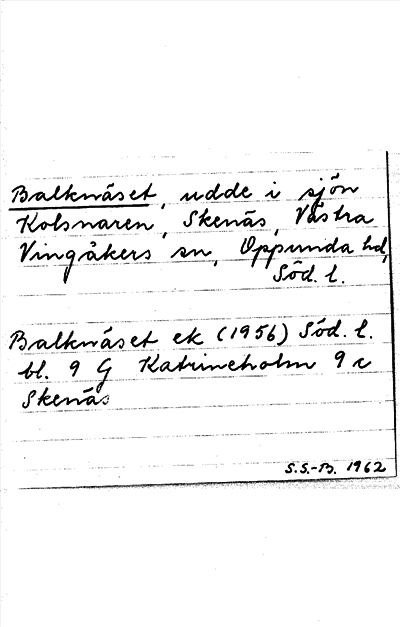 Balknäset, udde i sjön
Kolsnaren, Skenäs, Västra
Vingåkers sn, Oppunda hd,
Söd. l.
Balknäset ek (1956) Söd. l.
bl. 9 G Katrineholm 9 c
Skenäs
S.S.-B. 1962